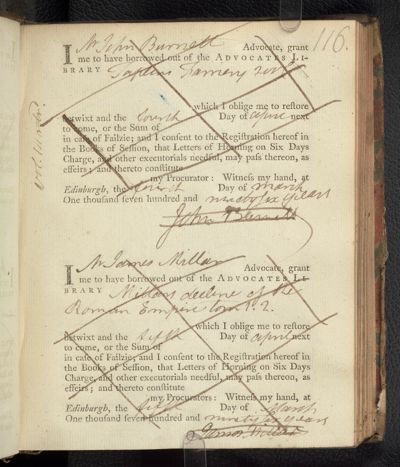 116.
I Mr John Burnett Advocate, grant
me to have borrowed out of the ADVOCATES LI-
BRARY
which I oblige me to restore
betwixt and the fourth Day of April next
to come, or the Sum of
in case of Failzie; and I consent to the Registration hereof in
the Books of Session, that Letters of Horning on Six Days
Charge, and other executorials needful, may pass thereon, as
effeirs; and thereto constitute
my Procurator: Witness my hand, at
Edinburgh, the fourth Day of March
One thousand seven hundred and ninety six years
John Burnett
I Mr James Millar Advocate, grant
me to have borrowed out of the ADVOCATES LI-
BRARY decline of the
Roman Empire tom 1. 2.
which I oblige me to restore
betwixt and the fifth Day of April next
to come, or the Sum of
in case of Failzie; and I consent to the Registration hereof in
the Books of Session, that Letters of Horning on Six Days
Charge, and other executorials needful, may pass thereon, as
effeirs; and thereto constitute
my Procurators: Witness my hand, at
Edinburgh, the fifth Day of March
One thousand seven hundred and ninety six years
James Millar